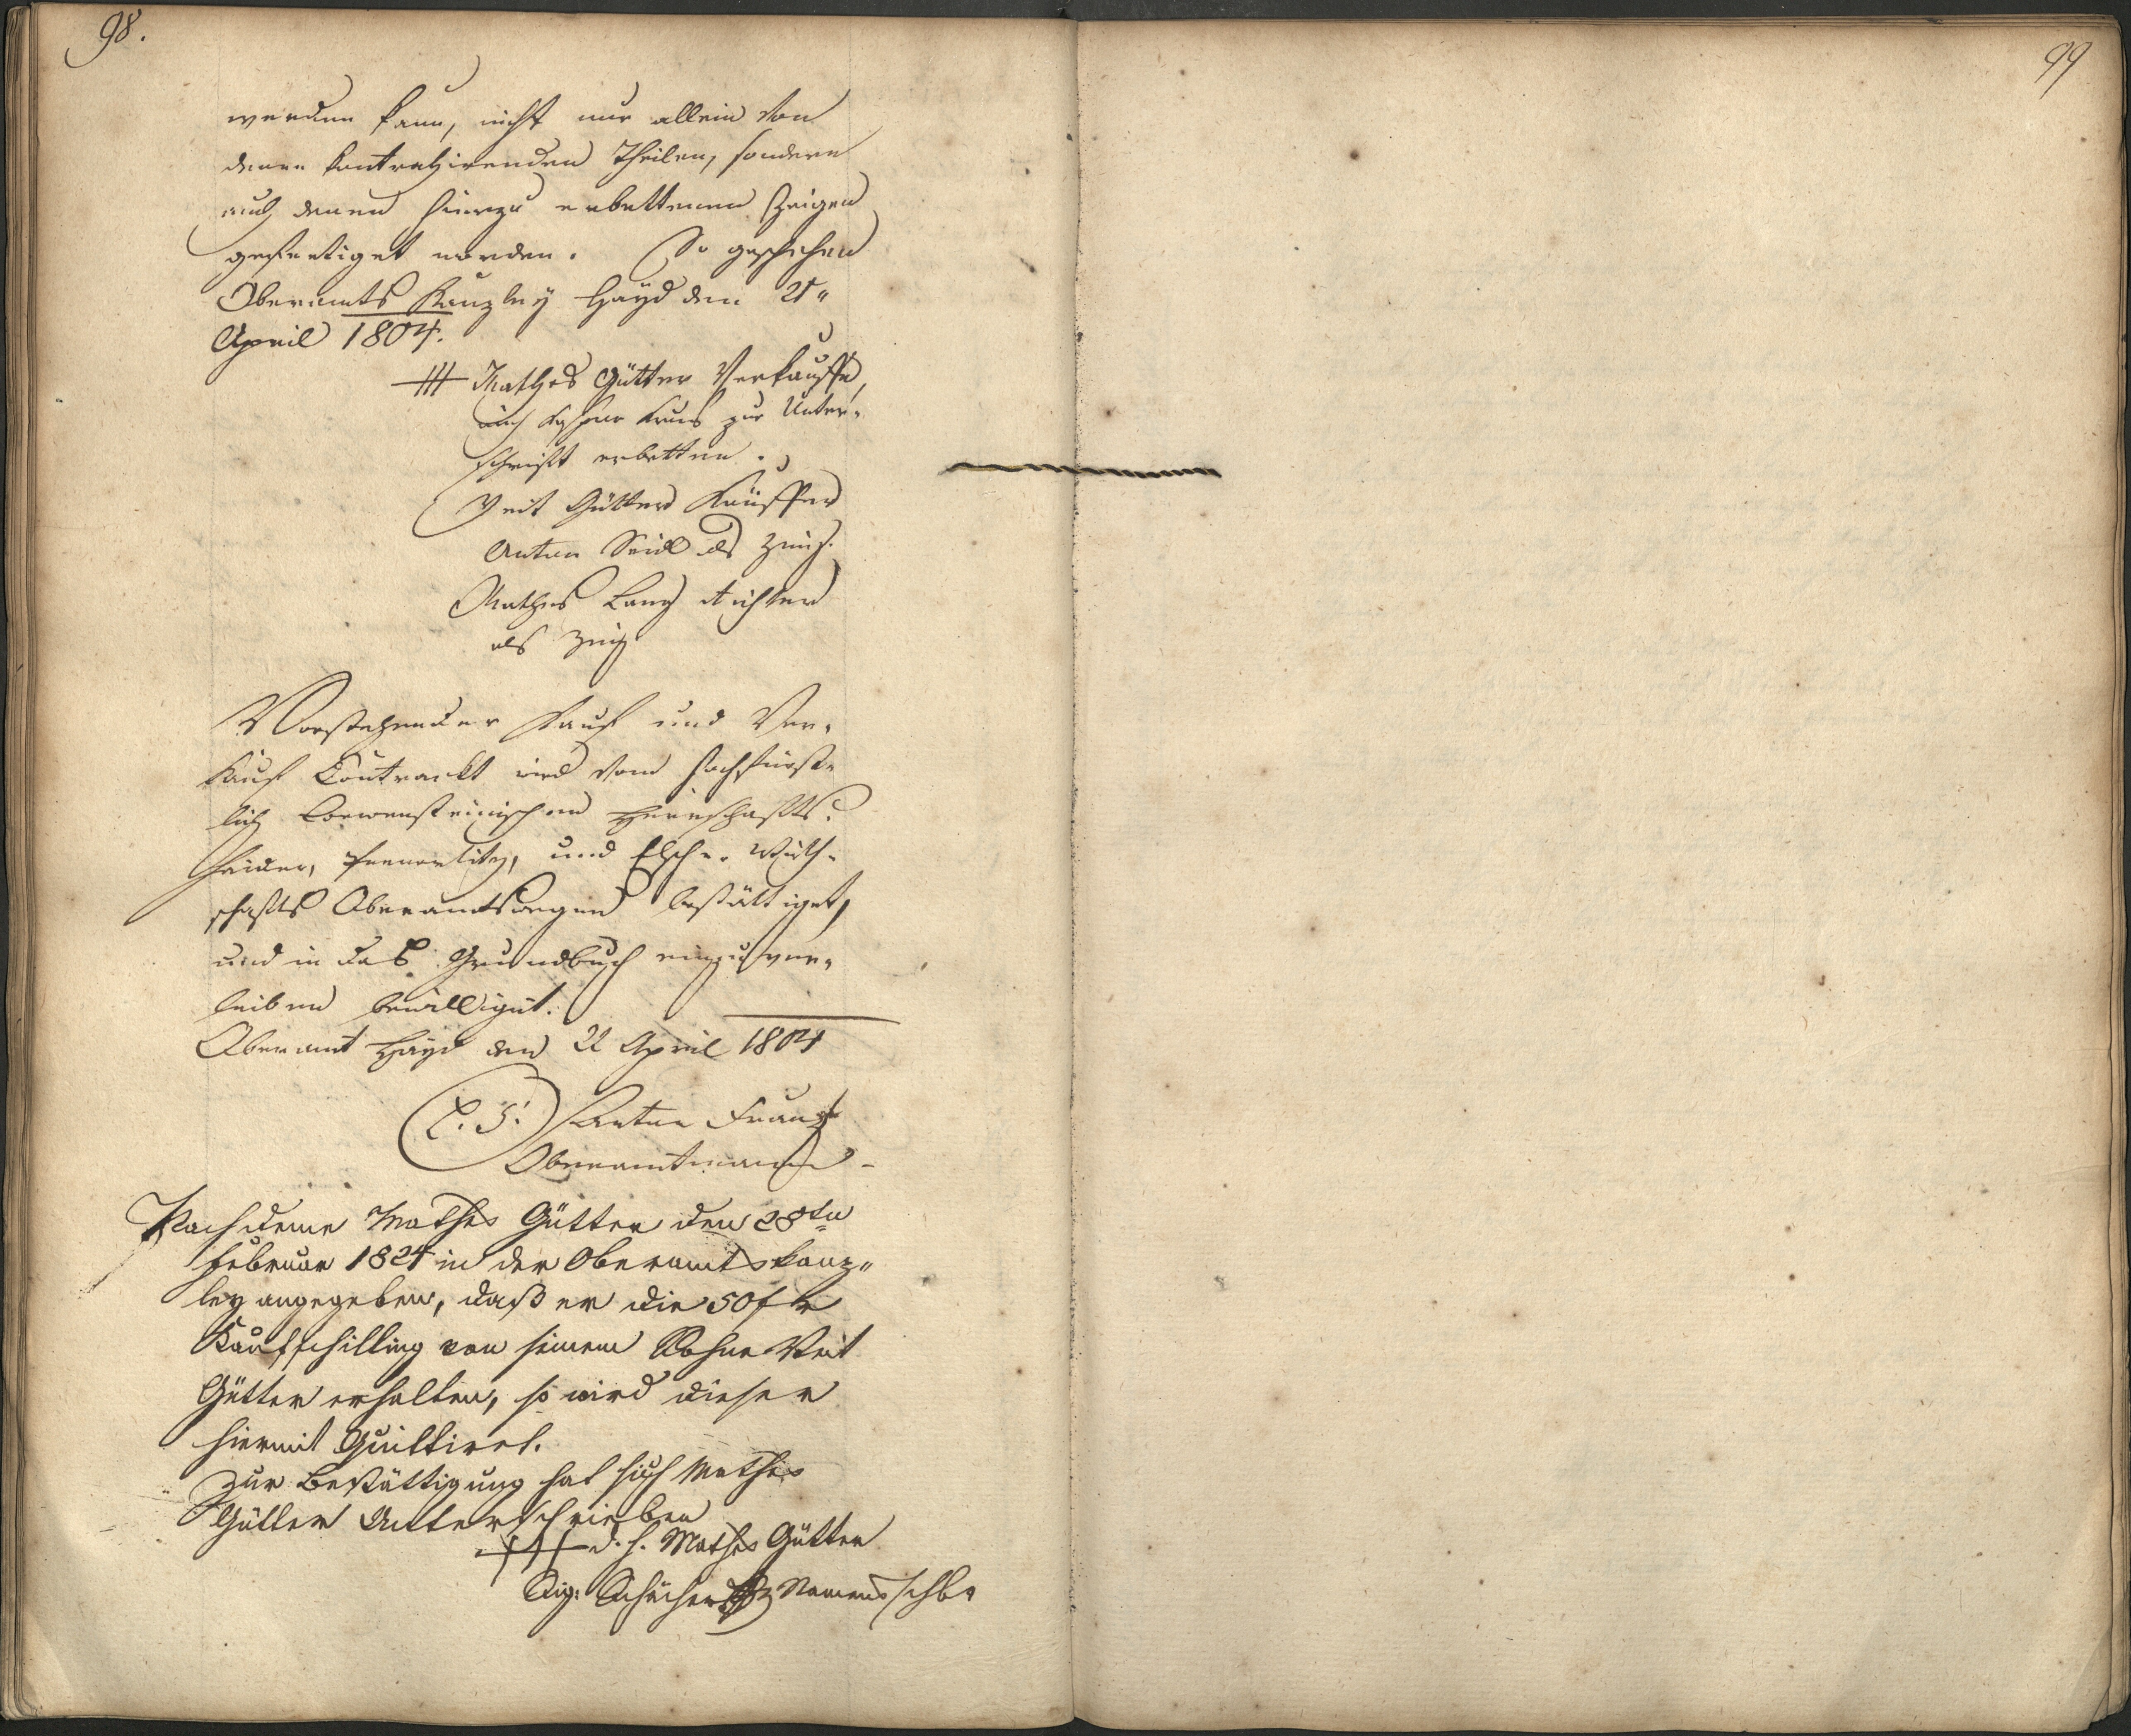 98.
werden kann, nicht nur allein von
denen kontrahirenden Theilen, sondern
auch denen hierzu erbettenen Zeigen
gefertiget worden. So geschehen
Oberamts Kanzley Hayd den 21"
April 1804.
+++ Mathes Gütter Verkauffer,
auch zur Unter-
schrift erbetten.
Veit Gütter Käuffer
Anton Seidl als Zeug.
Mathes Lang Richter
als Zeug
Vorstehender Kauf und Ver-
kauf Contrackt wird vom hochfürst-
lich Loewensteinischen Herrschafts
Haider, Pernartitz, und Elscher Wirth-
schafts Oberamtswegen bestättiget,
und in das Grundbuch einzuver-
leiben bewilliget.
Oberamt Hayd den 22 April 1804
(L. S.) Anton Franz
Oberamtmann
Nachdeme Mathes Gütter den 28ten
Februar 1824 in der Oberamtskanz-
ley angegeben, daß er die 50 f
Kaufschilling von seinem Sohne Veit
Gütter erhalten, so wird dieser
hiermit Quittiret.
Zur Bestättigung hat sich Mathes
Gütter Unterschrieben
+++ d. h. Mathes Gütter
Namensschbr
99